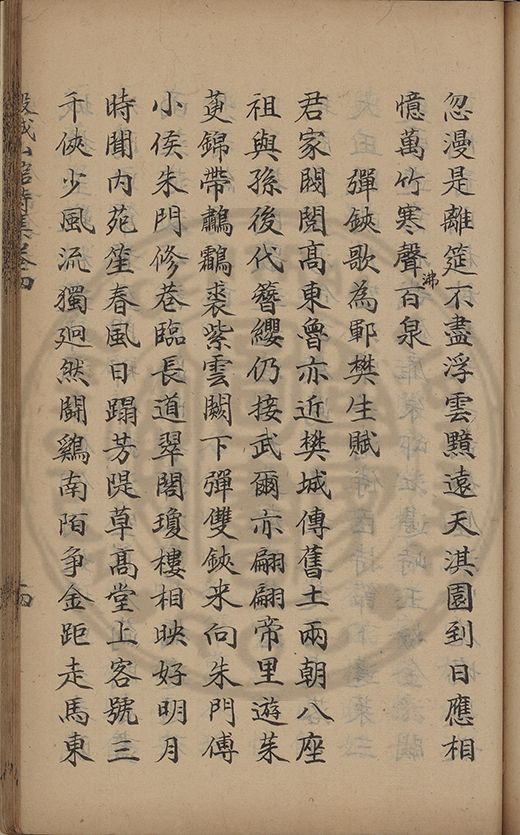 忽漫是離筵不盡浮雲黯遠天淇園到日應相
憶萬竹寒聲沸百泉
彈鋏歌為鄆樊生賦
君家閥閱高東魯亦近樊城傳舊土兩朝八座
祖與孫後代簪纓仍接武爾亦翩翩帝里遊茱
萸錦帶鸘裘紫雲闕下彈雙鋏来向朱門傅
小侯朱門修巷臨長道翠閣瓊樓相映好明月
時聞内苑笙春風日蹋芳隄草高堂上客號三
千俠少風流獨迥然鬪鷄南陌争金距走馬東
穀城山館詩集卷四
十四